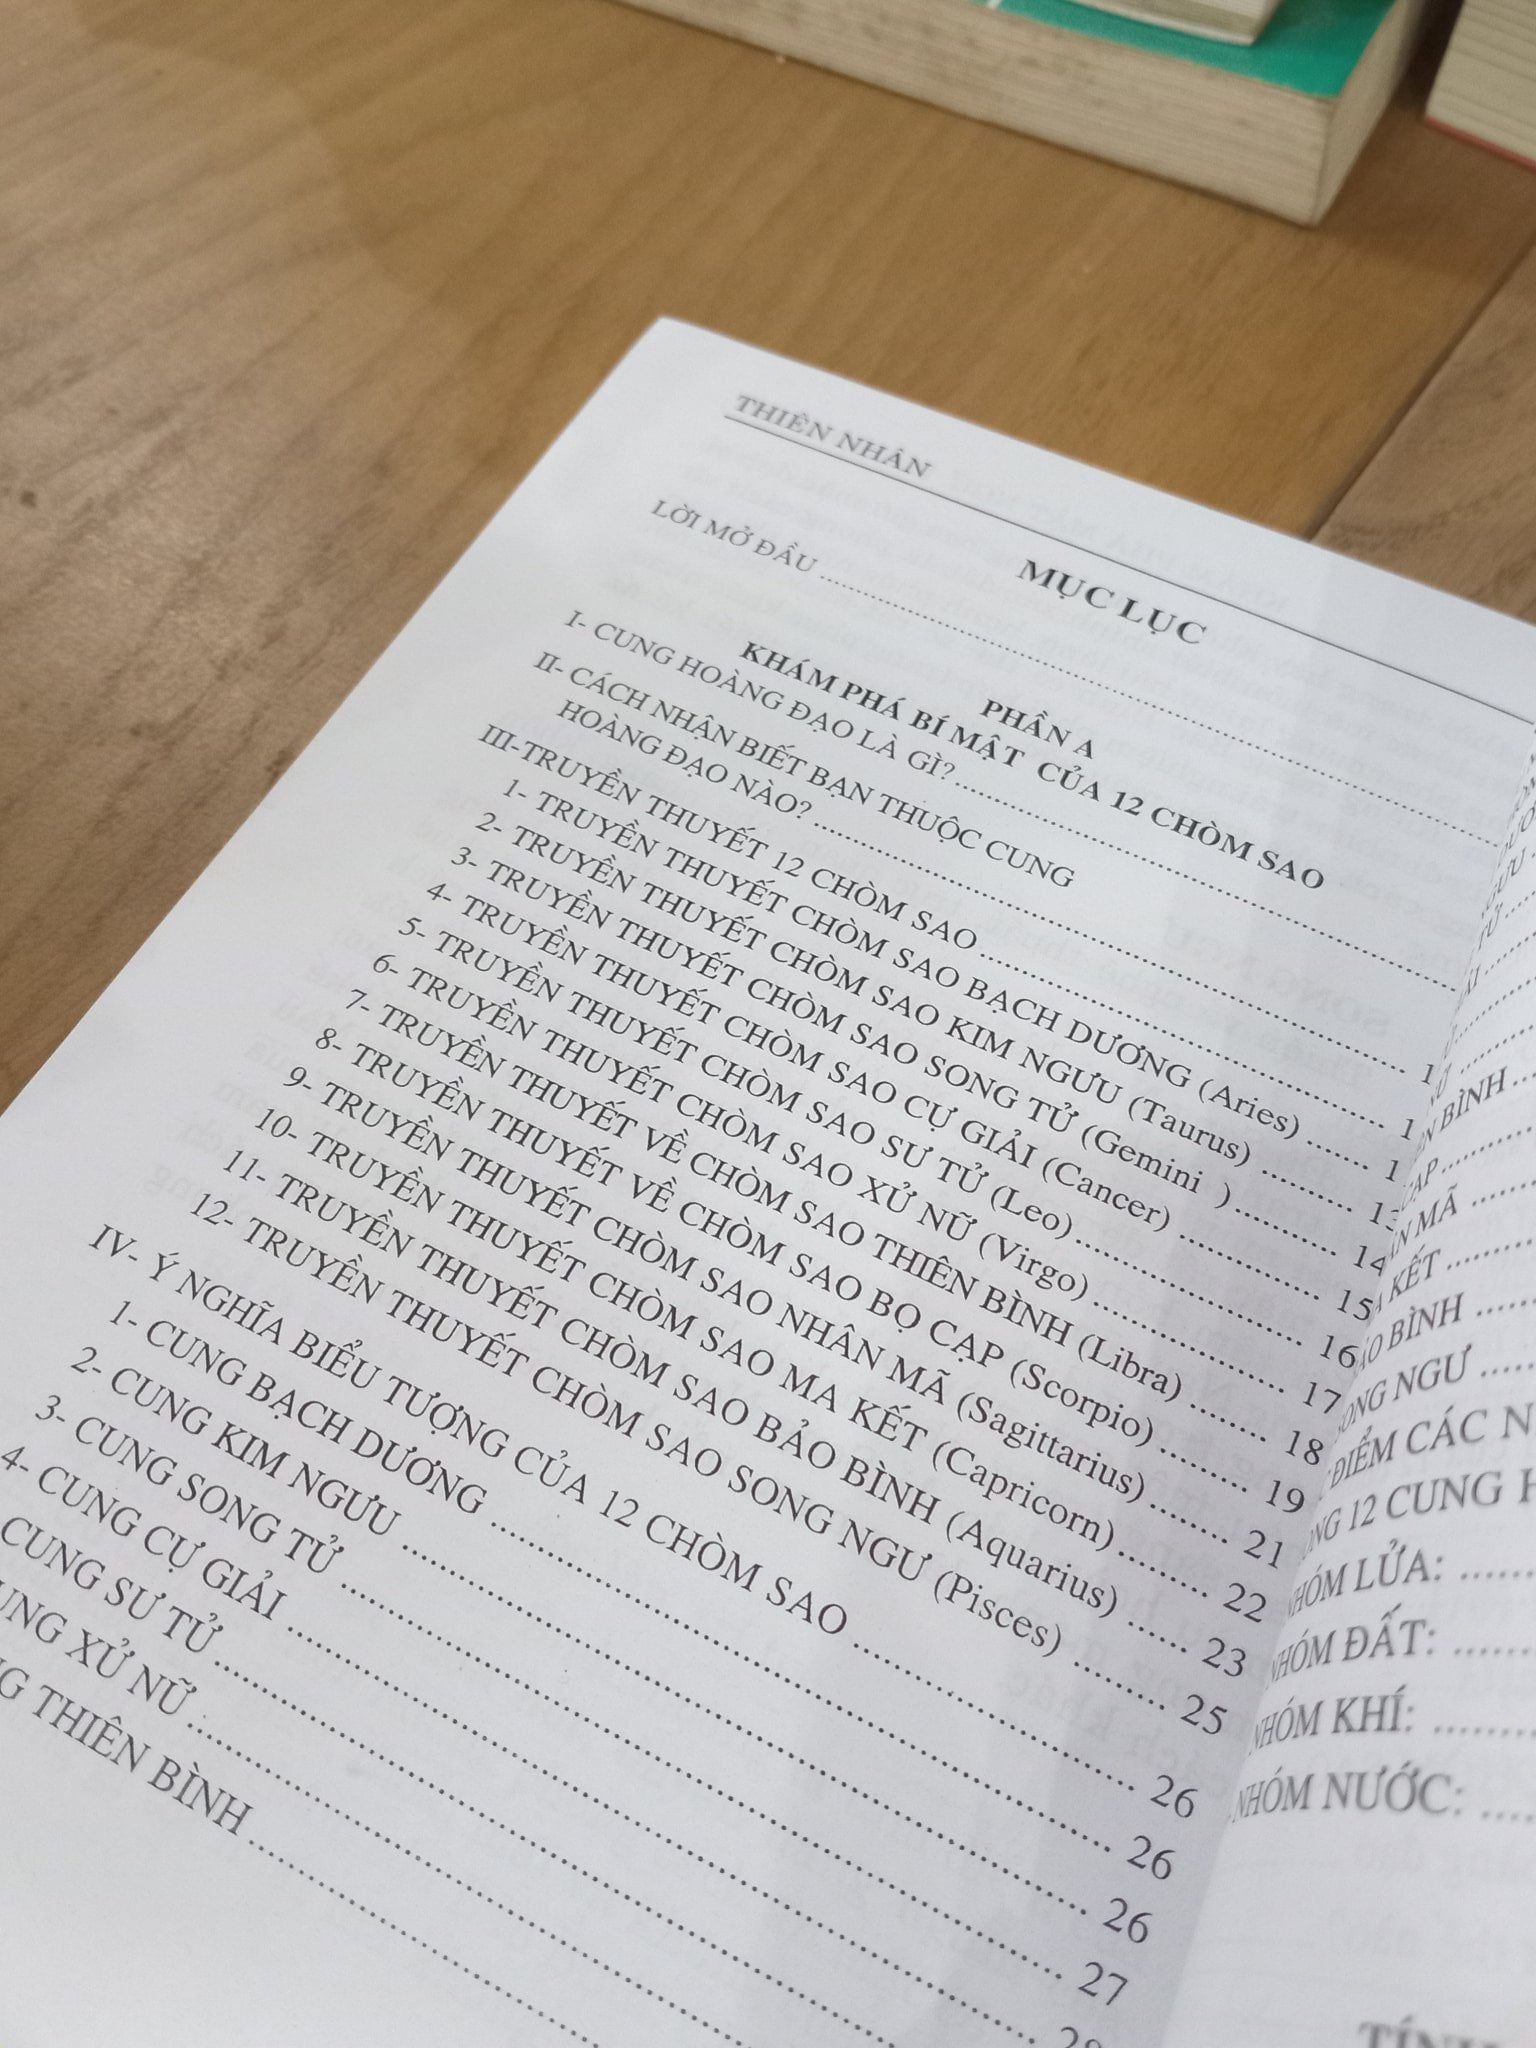 THIÊN NHÂN
MỤC LỤC
LỜI MỞ ĐẦU ..........
PHẦN A
KHÁM PHÁ BÍ MẬT CỦA 12 CHÒM SAO
I- CUNG HOÀNG ĐẠO LÀ GÌ? ..........
II- CÁCH NHẬN BIẾT BẠN THUỘC CUNG
HOÀNG ĐẠO NÀO? ..........
III-TRUYỀN THUYẾT 12 CHÒM SAO ..........
1- TRUYỀN THUYẾT CHÒM SAO BẠCH DƯƠNG (Aries) ..........
2- TRUYỀN THUYẾT CHÒM SAO KIM NGƯU (Taurus) .......... 13
3- TRUYỀN THUYẾT CHÒM SAO SONG TỬ (Gemini ) .......... 14
4- TRUYỀN THUYẾT CHÒM SAO CỰ GIẢI (Cancer) .......... 15
5- TRUYỀN THUYẾT CHÒM SAO SƯ TỬ (Leo) .......... 16
6- TRUYỀN THUYẾT CHÒM SAO XỬ NỮ (Virgo) .......... 17
7- TRUYỀN THUYẾT VỀ CHÒM SAO THIÊN BÌNH (Libra) .......... 18
8- TRUYỀN THUYẾT VỀ CHÒM SAO BỌ CẠP (Scorpio) .......... 19
9- TRUYỀN THUYẾT CHÒM SAO NHÂN MÃ (Sagittarius) .......... 21
10- TRUYỀN THUYẾT CHÒM SAO MA KẾT (Capricorn) .......... 22
11- TRUYỀN THUYẾT CHÒM SAO BẢO BÌNH (Aquarius) ...... 23
12- TRUYỀN THUYẾT CHÒM SAO SONG NGƯ (Pisces) .......... 25
IV- Ý NGHĨA BIỂU TƯỢNG CỦA 12 CHÒM SAO .......... 26
1- CUNG BẠCH DƯƠNG .......... 26
2- CUNG KIM NGƯU .......... 26
3- CUNG SONG TỬ .......... 27
4- CUNG CỰ GIẢI .......... 28
CUNG SƯ TỬ ..........
XỬ NỮ ..........
THIÊN BÌNH ..........
BÌNH
MÃ ..........
KẾT ..........
BÌNH ..........
NGƯ ..........
ĐIỂM CÁC
12 CUNG
NHÓM LỬA: ..........
NHÓM ĐẤT: ..........
NHÓM KHÍ: ..........
NHÓM NƯỚC: ..........